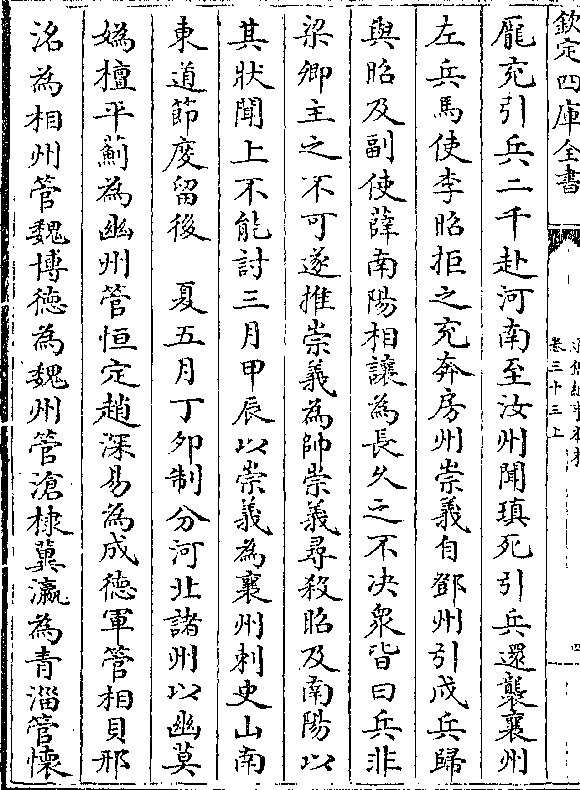 欽定四庫全書
卷三十三上
龎充引兵二千赴河南至汝州聞瑱死引兵還襲襄州
左兵馬使李昭拒之充奔房州崇義自鄧州引戍兵歸
與昭及副使薛南陽相讓為長久之不决衆皆曰兵非
梁卿主之不可遂推崇義為帥崇義尋殺昭及南陽以
其狀聞上不能討三月甲辰以崇義為襄州刺史山南
東道節度留後　夏五月丁夘制分河北諸州以幽莫
媯檀平薊為幽州管恒定趙深易為成德軍管相貝邢
洺為相州管魏博徳為魏州管滄棣冀瀛為青淄管懷